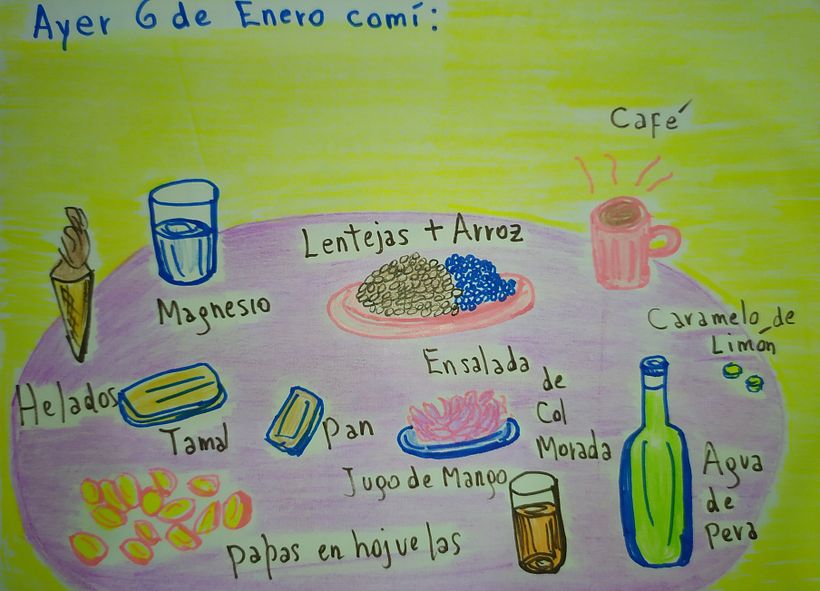 Ayer 6 de Enero comí:
Café
Lentejas + Arroz
Magnesio
Caramelo de
Limón
Helados
Tamal
Pan
Ensalada
de
Col
Morada
Jugo de Mango
Agua
de
Pera
papas en hojuelas